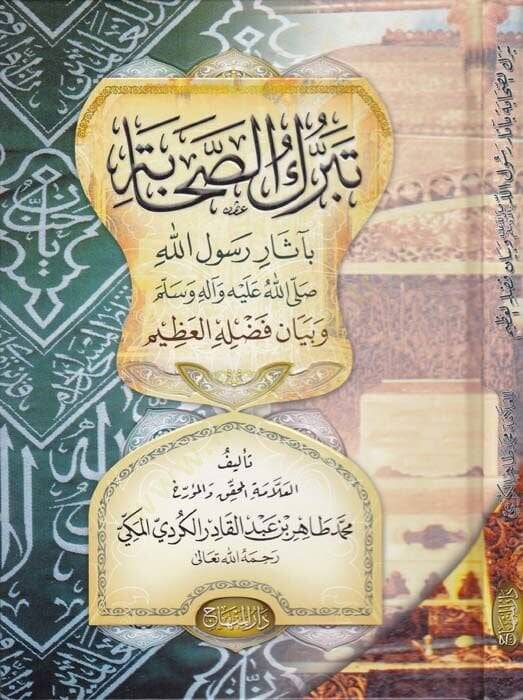 تَبَرُّكُ الصَّحَابَةِ
بِآثَارِ رَسُولِ اللهِ
صَلَّى اللهُ عَلَيْهِ وَآلِهِ وَسَلَّمَ
وَبَيَانِ فَضْلِهِ الْعَظِيمِ
تأليفُ
العلّامة المحقق والمؤرّخ
محمد طاهر بن عبد القادر الكردي المكي
رحمهُ الله تعالى
دار المنهاج
تبرك الصحابة بآثار رسول الله صلى الله عليه وآله وسلم وبيان فضله العظيم
للعلامة محمد طاهر الكردي
دار المنهاج